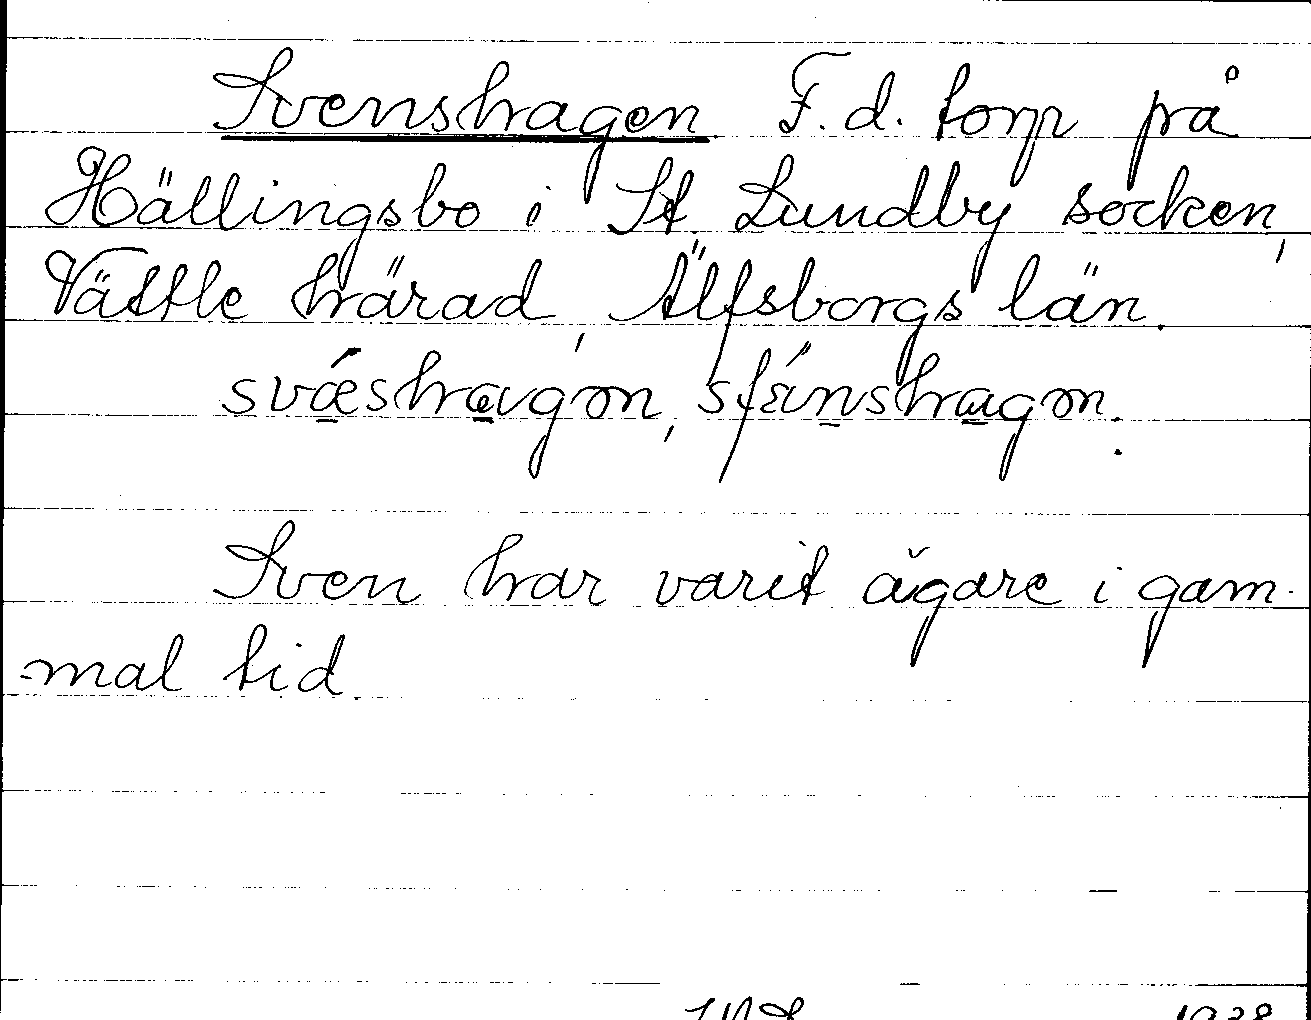 Svenshagen F.d. torp på
Hällingsbo i St. Lundby socken,
Vättle härad, Älfsborgs län.
Sven har varit ägare i gam-
mal tid.